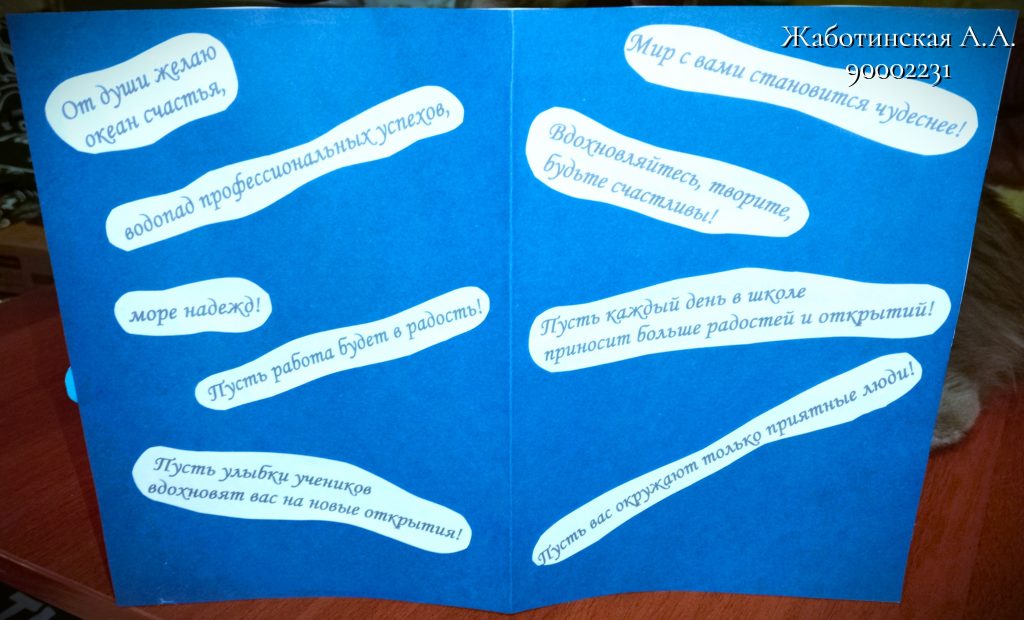 От души желаю
океан счастья,
водопад профессиональных успехов,
море надежд!
Пусть работа будет в радость!
Пусть улыбки учеников
вдохновят вас на новые открытия!
Жаботинская А.А.
90002231
Мир с вами становится чудеснее!
Вдохновляйтесь, творите,
будьте счастливы!
Пусть каждый день в школе
приносит больше радостей и открытий!
Пусть вас окружают только приятные люди!